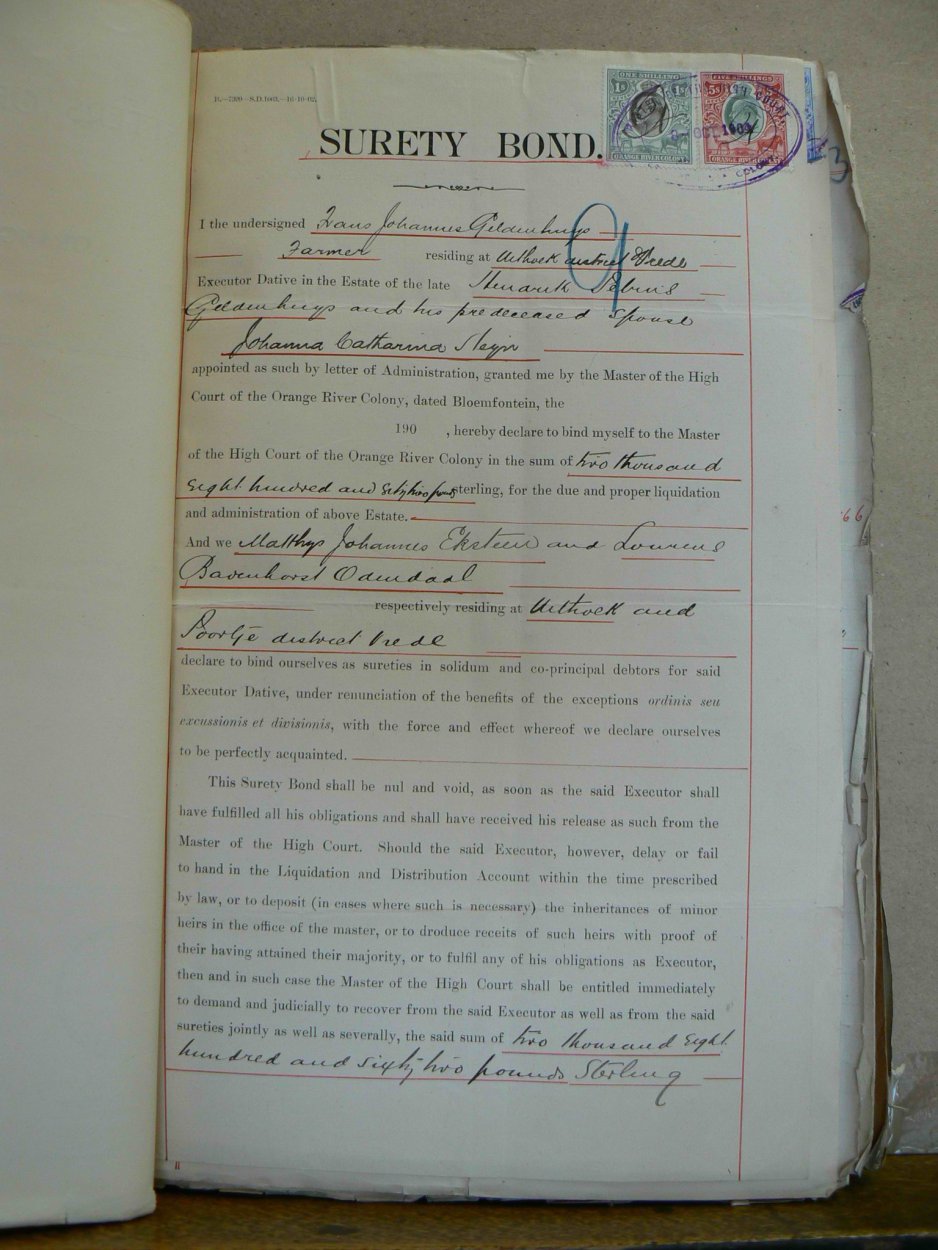 R.—7399—S.D.1663.—16-10-02.
ONE SHILLING
1s 1s
ORANGE RIVER COLONY
FIVE SHILLINGS
5s 5s
ORANGE RIVER COLONY
OCT 1903
SURETY BOND.
I the undersigned Frans Johannes Geldenhuys
Farmer residing at Uithoek district Vrede
Executor Dative in the Estate of the late Hendrik
Geldenhuys and his predeceased spouse
Johanna Catharina Heyn
appointed as such by letter of Administration, granted me by the Master of the High
Court of the Orange River Colony, dated Bloemfontein, the
190 , hereby declare to bind myself to the Master
of the High Court of the Orange River Colony in the sum of two thousand
eight hundred and sixty two pounds sterling, for the due and proper liquidation
and administration of above Estate.
And we Matthys Johannes Eksteen and Lourens
Badenhorst Odendaal
respectively residing at Uithoek and
Poortje district Vrede
declare to bind ourselves as sureties in solidum and co-principal debtors for said
Executor Dative, under renunciation of the benefits of the exceptions ordinis seu
excussionis et divisionis, with the force and effect whereof we declare ourselves
to be perfectly acquainted.
This Surety Bond shall be nul and void, as soon as the said Executor shall
have fulfilled all his obligations and shall have received his release as such from the
Master of the High Court. Should the said Executor, however, delay or fail
to hand in the Liquidation and Distribution Account within the time prescribed
by law, or to deposit (in cases where such is necessary) the inheritances of minor
heirs in the office of the master, or to droduce receits of such heirs with proof of
their having attained their majority, or to fulfil any of his obligations as Executor,
then and in such case the Master of the High Court shall be entitled immediately
to demand and judicially to recover from the said Executor as well as from the said
sureties jointly as well as severally, the said sum of two thousand Eight
hundred and sixty two pounds Sterling